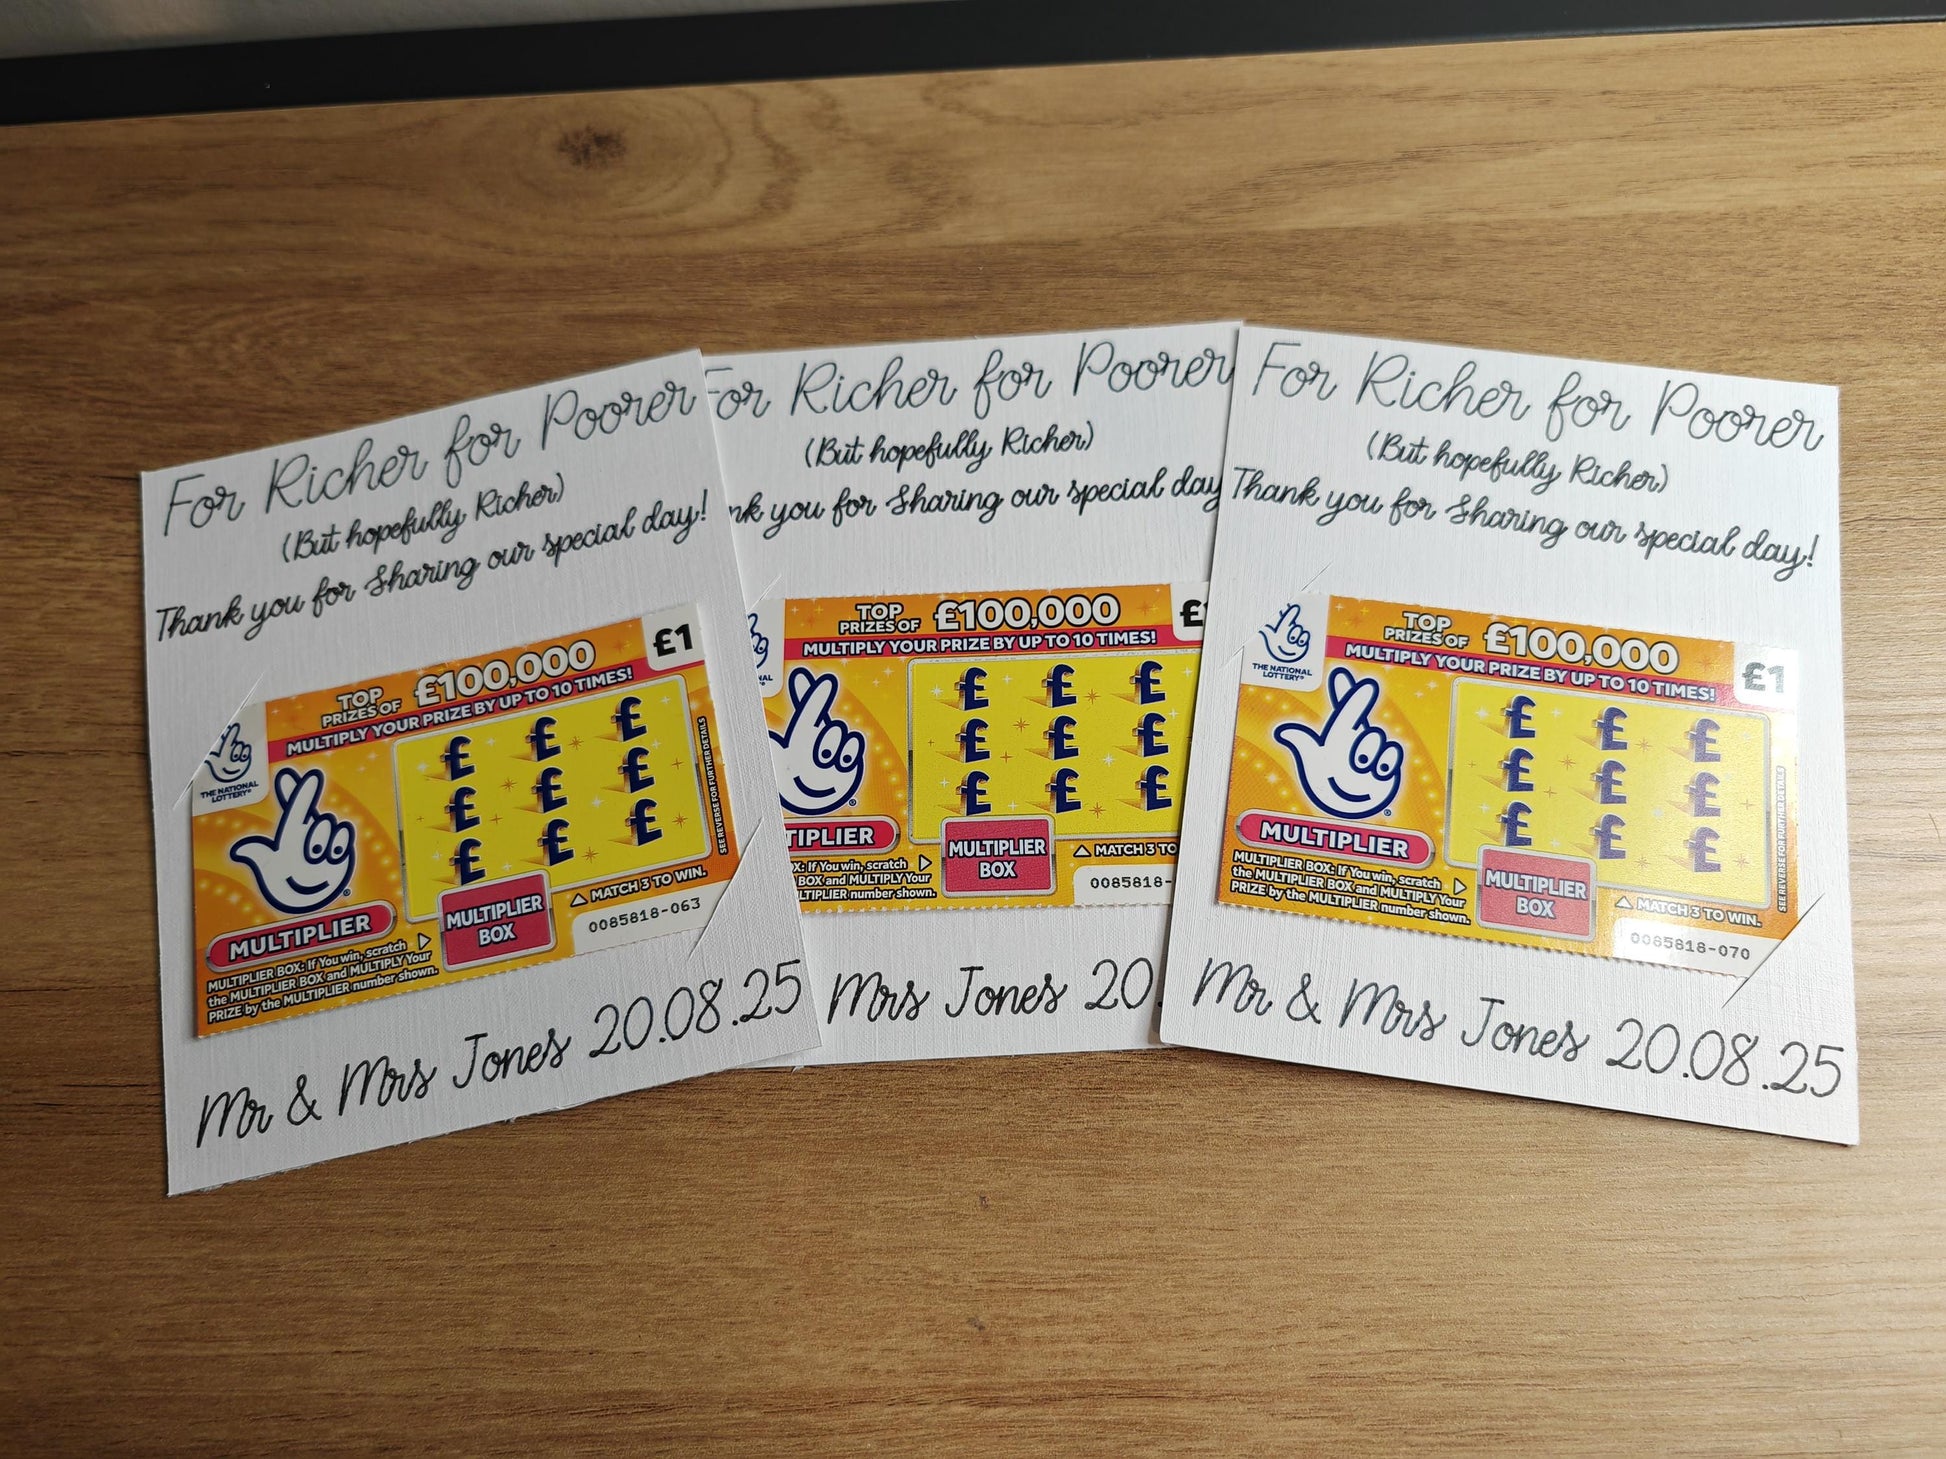 For Richer for Poorer
(But hopefully Richer)
Thank you for Sharing our special day!
THE NATIONAL
LOTTERY®
TOP
PRIZES OF £100,000
£1
MULTIPLY YOUR PRIZE BY UP TO 10 TIMES!
£ £ £
£ £ £
£ £ £
SEE REVERSE FOR FURTHER DETAILS
MULTIPLIER
MULTIPLIER BOX: If You win, scratch
the MULTIPLIER BOX and MULTIPLY Your
PRIZE by the MULTIPLIER number shown.
MULTIPLIER
BOX
MATCH 3 TO WIN.
0085818-063
Mr & Mrs Jones 20.08.25
For Richer for Poorer
(But hopefully Richer)
nk you for Sharing our special day
NAL
TOP
PRIZES OF £100,000
£1
MULTIPLY YOUR PRIZE BY UP TO 10 TIMES!
£ £ £
£ £ £
£ £ £
TIPLIER
X: If You win, scratch
BOX and MULTIPLY Your
TIPLIER number shown.
MULTIPLIER
BOX
MATCH 3 TO
0085818-
Mrs Jones 20.
For Richer for Poorer
(But hopefully Richer)
Thank you for Sharing our special day!
THE NATIONAL
LOTTERY®
TOP
PRIZES OF £100,000
£1
MULTIPLY YOUR PRIZE BY UP TO 10 TIMES!
£ £ £
£ £ £
£ £ £
SEE REVERSE FOR FURTHER DETAILS
MULTIPLIER
MULTIPLIER BOX: If You win, scratch
the MULTIPLIER BOX and MULTIPLY Your
PRIZE by the MULTIPLIER number shown.
MULTIPLIER
BOX
MATCH 3 TO WIN.
0085818-070
Mr & Mrs Jones 20.08.25